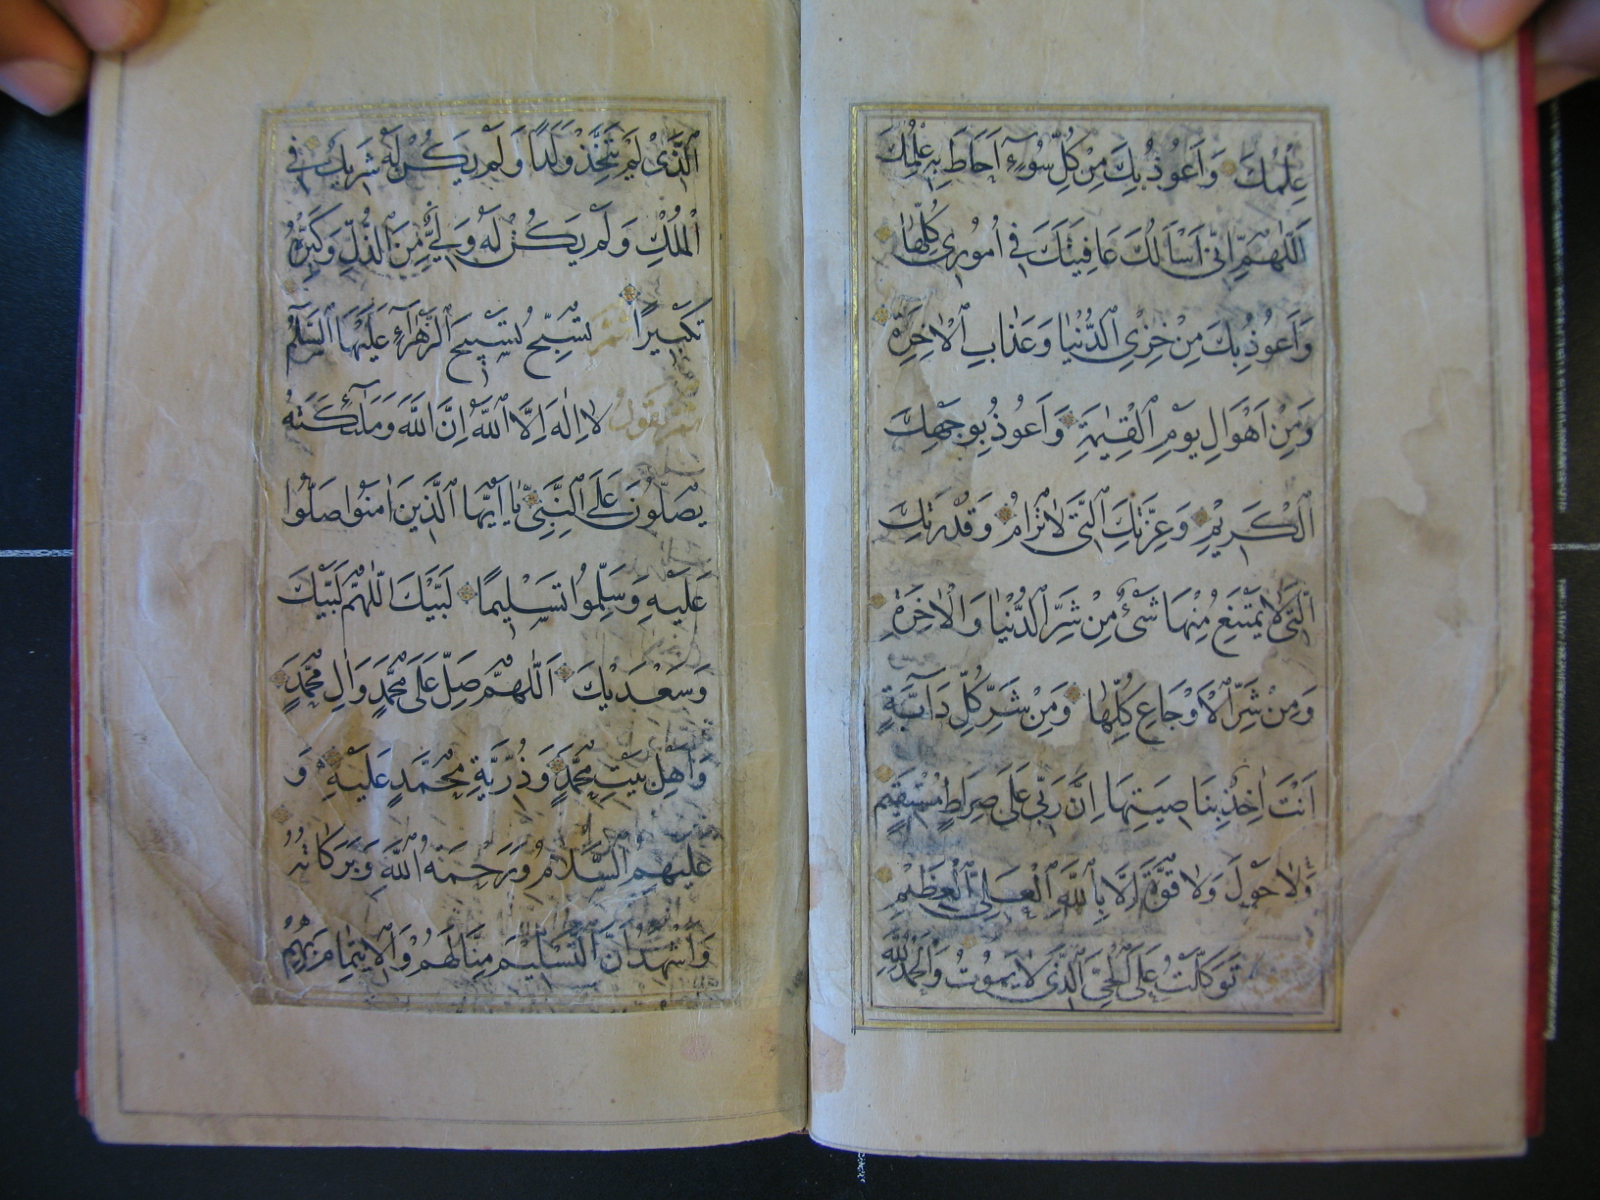 عِلْمُكَ وَاَعُوذُ بِكَ مِنْ كُلِّ سُوۤءٍ اَحَاطَ بِهِ عِلْمُكَ
اَللّٰهُمَّ اِنّٖى اَسْاَلُكَ عَافِيَتَكَ فٖى اُمُورٖى كُلِّهَا
وَاَعُوذُ بِكَ مِنْ خِزْىِ الدُّنْيَا وَعَذَابِ الْاٰخِرَةِ
وَمِنْ اَهْوَالِ يَوْمِ الْقِيٰمَةِ وَاَعُوذُ بِوَجْهِكَ
الْكَرٖيمِ وَعِزَّتِكَ الَّتٖى لَا تُرَامُ وَقُدْرَتِكَ
الَّتٖى لَا يَمْتَنِعُ مِنْهَا شَىْءٌ مِنْ شَرِّ الدُّنْيَا وَالْاٰخِرَةِ
وَمِنْ شَرِّ الْاَوْجَاعِ كُلِّهَا وَمِنْ شَرِّ كُلِّ دَاۤبَّةٍ
اَنْتَ اٰخِذٌ بِنَاصِيَتِهَا اِنَّ رَبّٖى عَلٰى صِرَاطٍ مُسْتَقٖيمٍ
وَلَا حَوْلَ وَلَا قُوَّةَ اِلَّا بِاللّٰهِ الْعَلِىِّ الْعَظٖيمِ
تَوَكَّلْتُ عَلَى الْحَىِّ الَّذٖى لَا يَمُوتُ وَالْحَمْدُ لِلّٰهِ
الَّذٖى لَمْ يَتَّخِذْ وَلَدًا وَلَمْ يَكُنْ لَهُ شَرٖيكٌ فِى
الْمُلْكِ وَلَمْ يَكُنْ لَهُ وَلِىٌّ مِنَ الذُّلِّ وَكَبِّرْهُ
تَكْبٖيرًا ثم تُسَبِّحُ تَسْبٖيحَ الزَّهْرَاۤءِ عَلَيْهَا السَّلٰمُ
ثم تقول لَا اِلٰهَ اِلَّا اللّٰهُ اِنَّ اللّٰهَ وَمَلٰۤئِكَتَهُ
يُصَلُّونَ عَلَى النَّبِىِّ يَا اَيُّهَا الَّذٖينَ اٰمَنُوا صَلُّوا
عَلَيْهِ وَسَلِّمُوا تَسْلٖيمًا لَبَّيْكَ اللّٰهُمَّ لَبَّيْكَ
وَسَعْدَيْكَ اَللّٰهُمَّ صَلِّ عَلٰى مُحَمَّدٍ وَاٰلِ مُحَمَّدٍ
وَاَهْلِ بَيْتِ مُحَمَّدٍ وَذُرِّيَّةِ مُحَمَّدٍ عَلَيْهِ وَ
عَلَيْهِمُ السَّلَامُ وَرَحْمَةُ اللّٰهِ وَبَرَكَاتُهُ
وَاَشْهَدُ اَنَّ التَّسْلٖيمَ مِنَّا لَهُمْ وَالْاِيتِمَامَ بِهِمْ